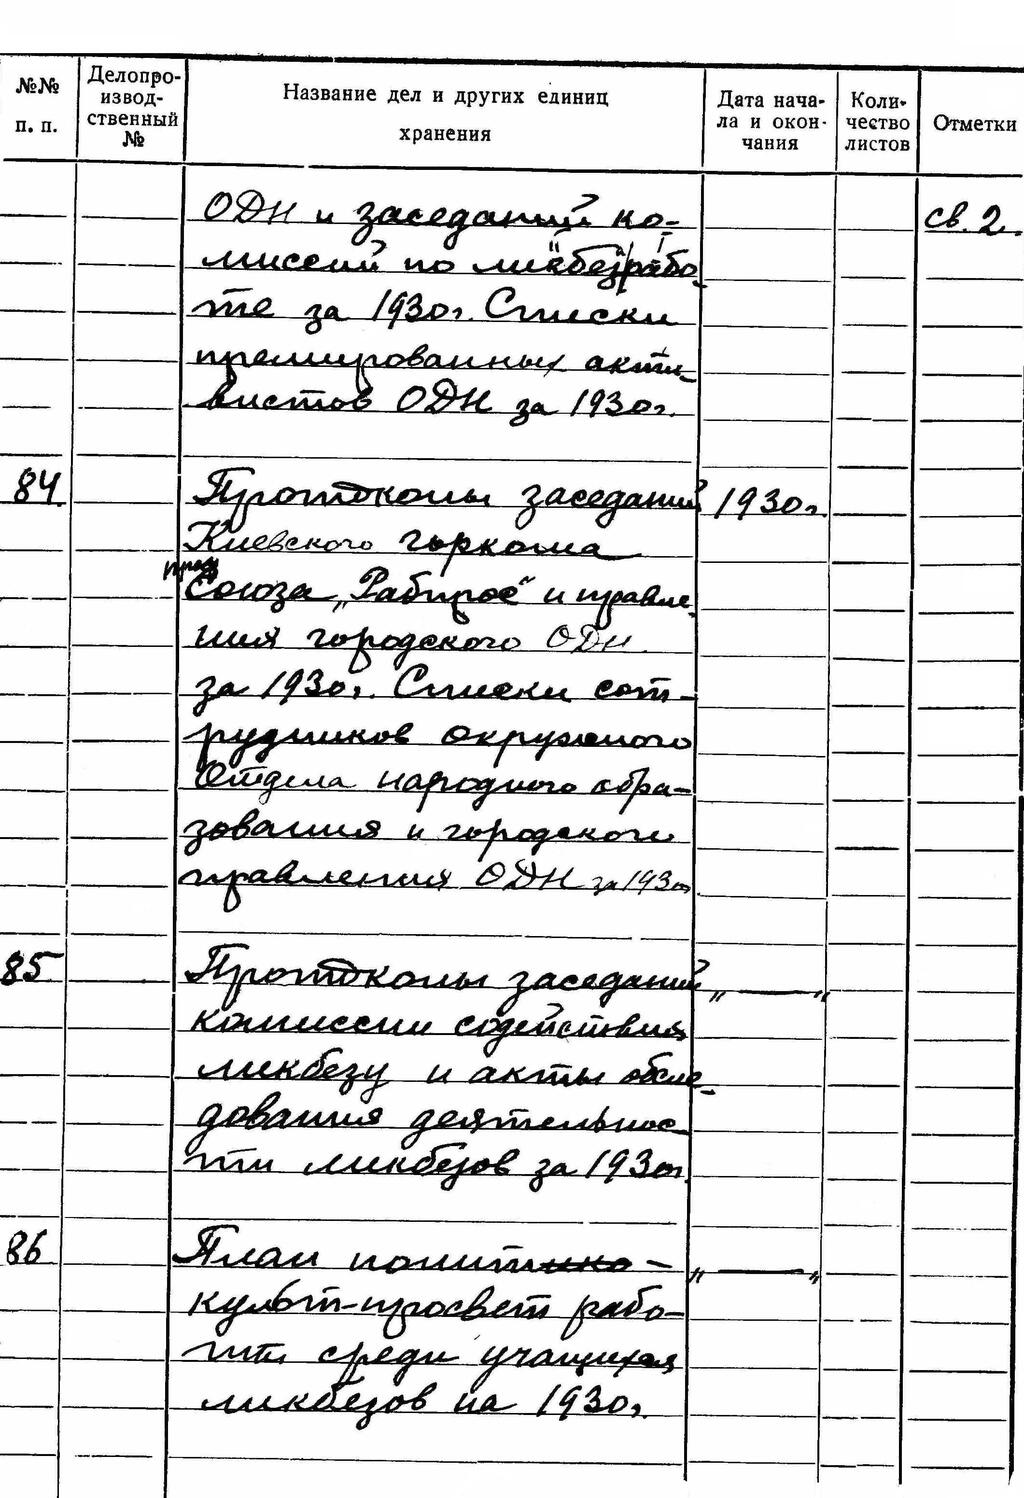 №№ п. п.
Делопро-
извод-
ственный
№
Название дел и других единиц
хранения
Дата нача-
ла и окон-
чания
Коли-
чество
листов
Отметки
ОДН и заседаний ко-
св. 2.
миссий по ликбезрабо-
те за 1930г. Списки
премированных акти-
вистов ОДН за 1930г.
84 Протоколы заседаний 1930г.
Киевского горкома
проф
Союза „Рабпрос" и правле-
ния городского ОДН
за 1930г. Списки сот-
рудников окружного
Отдела народного обра-
зования и городского
правления ОДН за 1930г
85 Протоколы заседаний „ — „
комиссии содействия
ликбезу и акты обсле-
дования деятельнос
ти ликбезов за 1930г.
86 План полит - „ — „
культ-просвет рабо-
ты среди учащихся
ликбезов на 1930г.